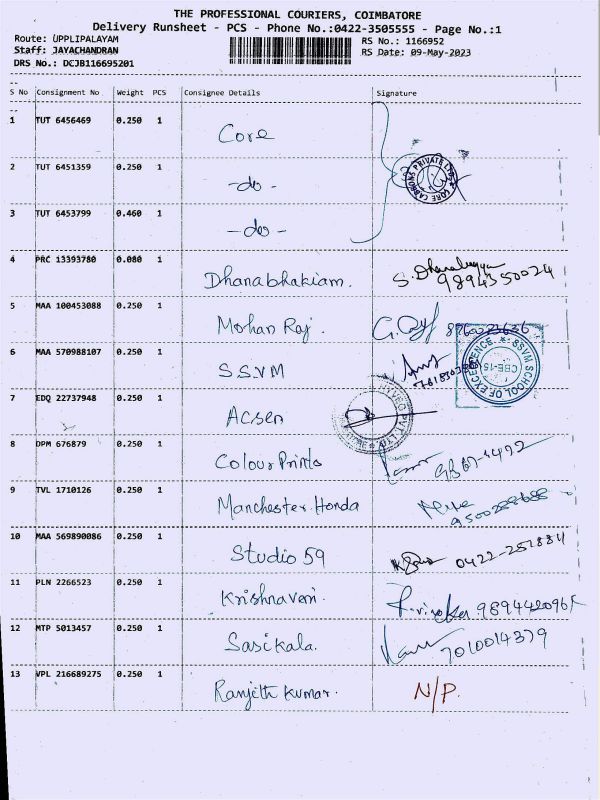 THE PROFESSIONAL COURIERS, COIMBATORE
Delivery Runsheet - PCS - Phone No.:0422-3505555 - Page No.:1
Route: UPPLIPALAYAM RS No.: 1166952
Staff: JAYACHANDRAN RS Date: 09-May-2023
DRS No.: DCJB116695201
S No Consignment No Weight PCS Consignee Details Signature
1 TUT 6456469 0.250 1 Core
2 TUT 6451359 0.250 1 -do-
CORE CARBONS PRIVATE LTD
3 TUT 6453799 0.460 1 -do-
4 PRC 13393780 0.080 1 Dhanabhakiam. S. 9894350024
5 MAA 100453088 0.250 1 Mohan Raj.
6 MAA 570988107 0.250 1 S.S.V.M
SSVM SCHOOL OF EXCELLENCE CBE-15
7 EDQ 22737948 0.250 1 Acsen
PVT. LTD
8 DPM 676879 0.250 1 Colour Prints
9 TVL 1710126 0.250 1 Manchester Honda
10 MAA 569890086 0.250 1 Studio 59
11 PLN 2266523 0.250 1 Krishnaveni.
12 MTP 5013457 0.250 1 Sasikala. 7010014379
13 VPL 216689275 0.250 1 Ranjith Kumar. N/P.